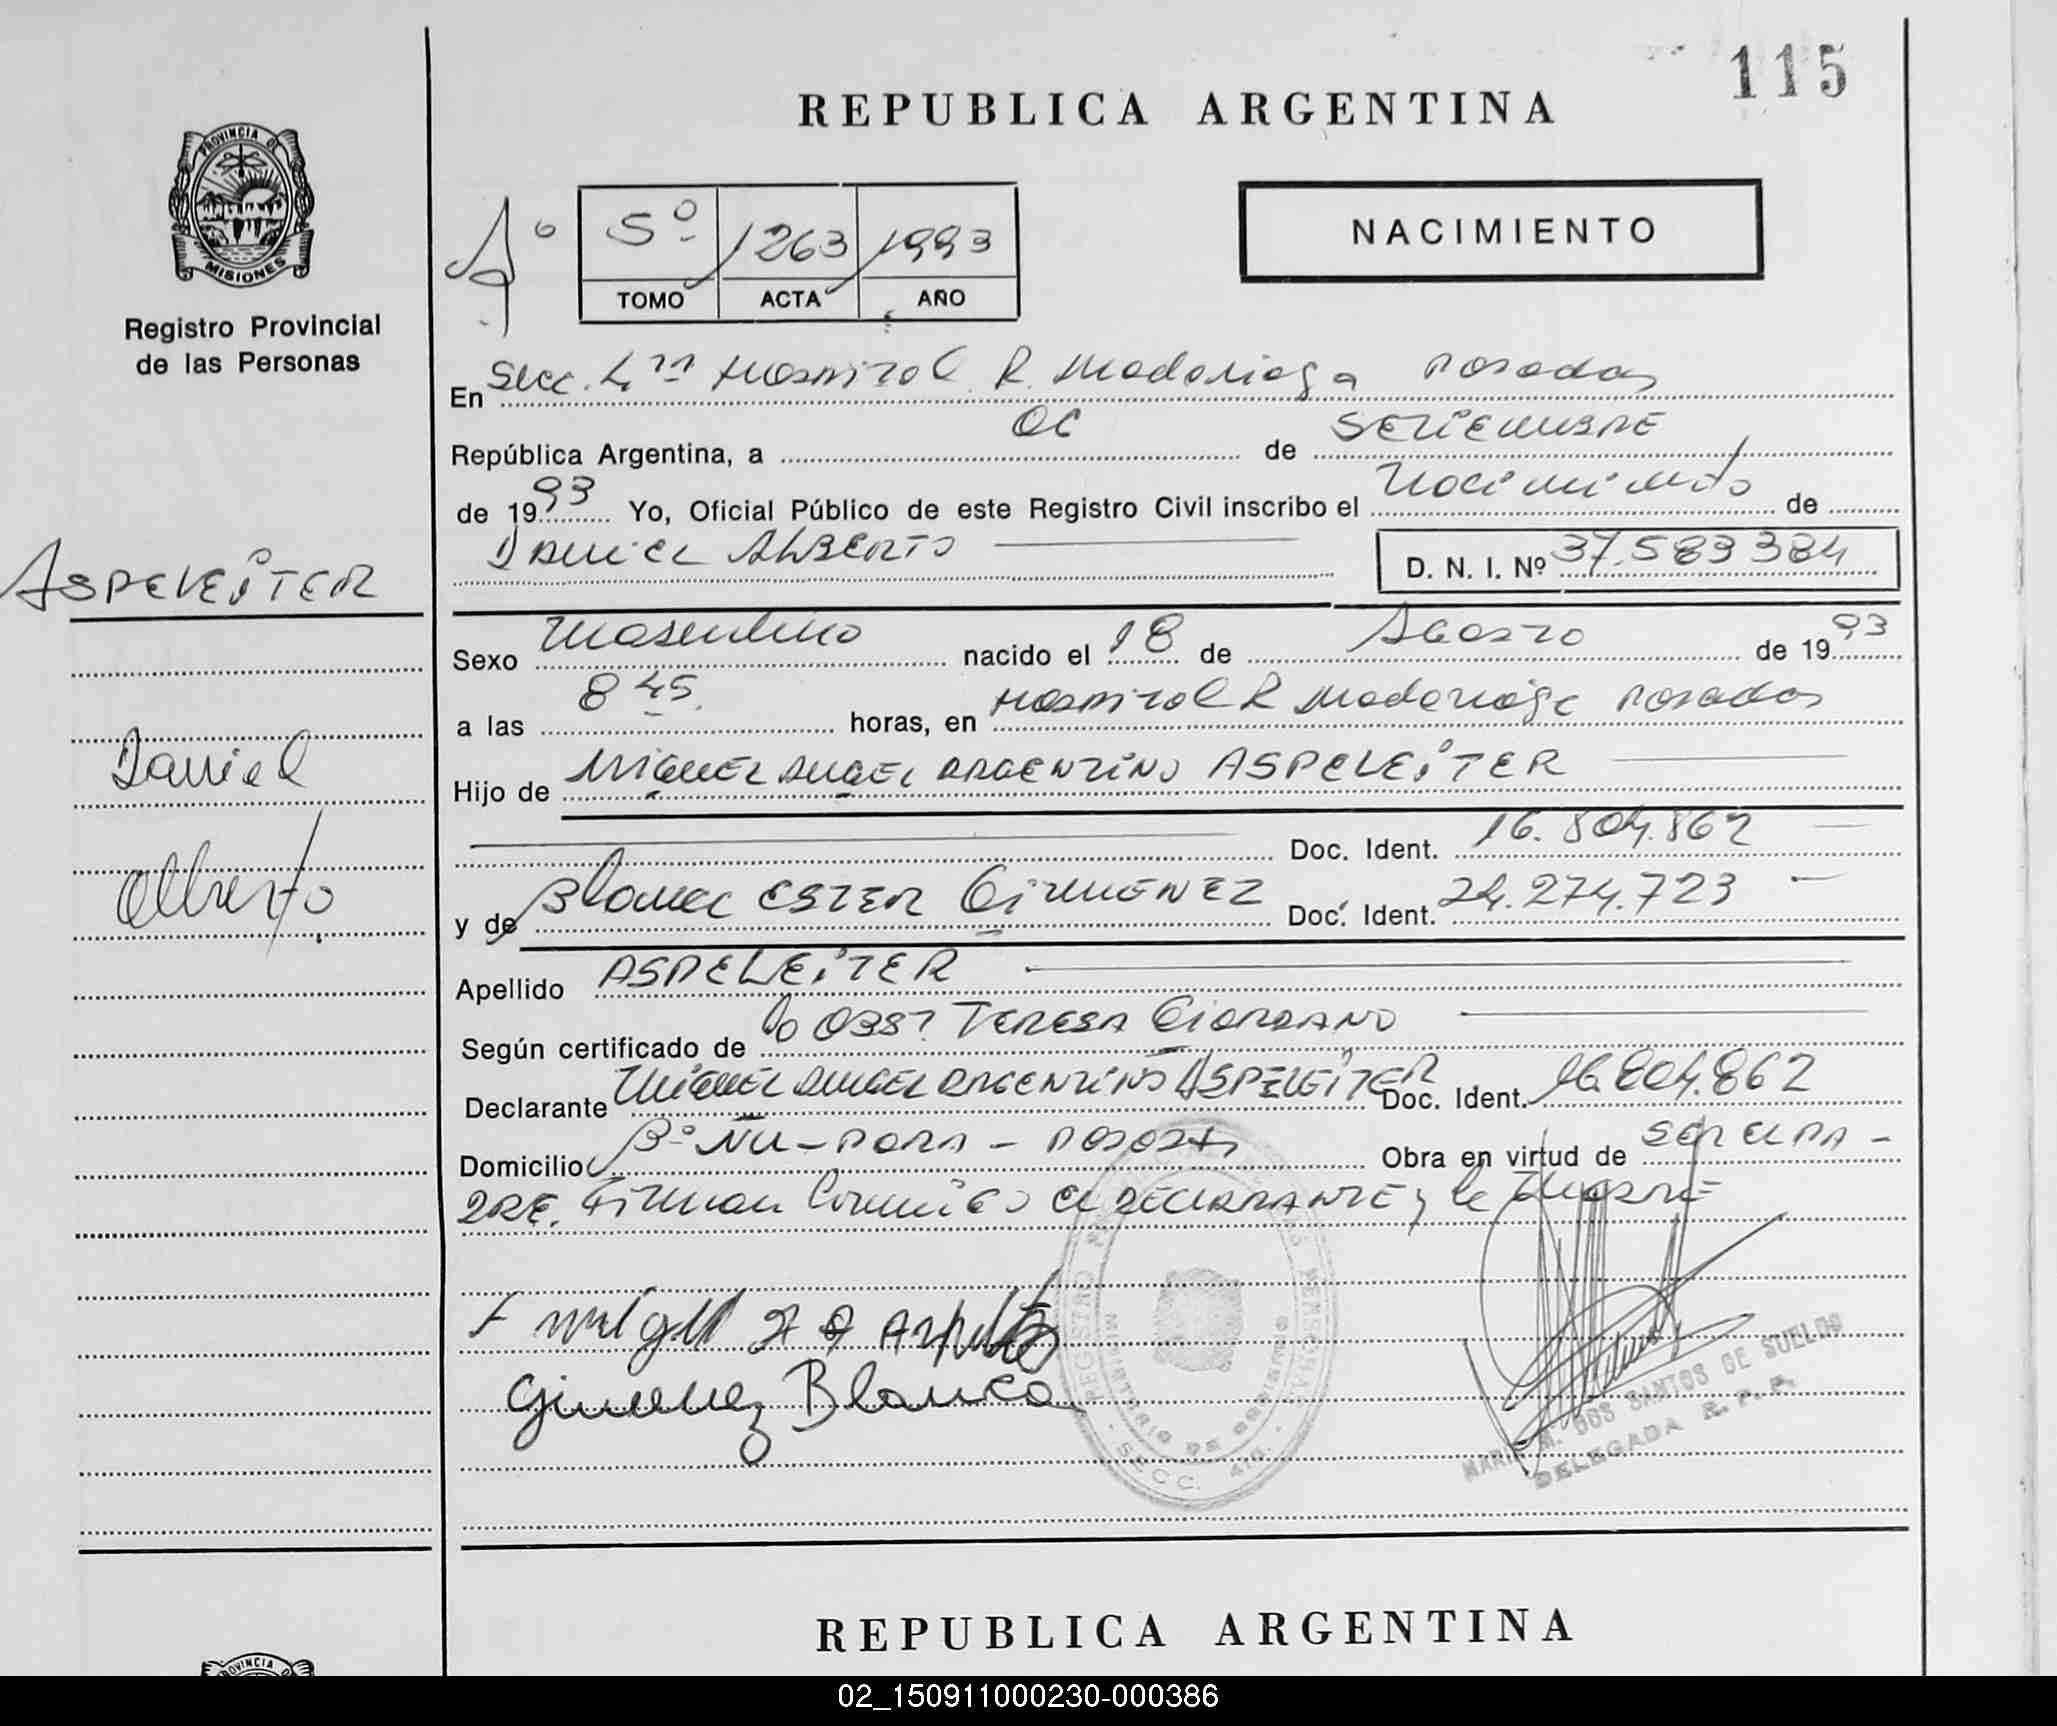 115
REPUBLICA ARGENTINA
PROVINCIA DE
MISIONES
Registro Provincial
de las Personas
Aº 5º 1263 1993
TOMO ACTA AÑO
NACIMIENTO
En Secc. 4ta Hospital R. Madariaga Posadas
República Argentina, a 06 de SETIEMBRE
de 1993 Yo, Oficial Público de este Registro Civil inscribo el Nacimiento de
DANIEL ALBERTO D. N. I. Nº 37.583384
ASPELEiTER
Daniel
Alberto
Sexo Masculino nacido el 18 de Agosto de 1993
a las 8 45 horas, en Hospital R Madariaga Posadas
Hijo de MIGUEL ANGEL ARGENTINO ASPELEiTER
Doc. Ident. 16.804.862
y de Blanca ESTER GiMENEZ Doc. Ident. 24.274.723
Apellido ASPELEiTER
Según certificado de la OBST TERESA GiORDANO
Declarante MIGUEL ANGEL ARGENTINO ASPELEITER Doc. Ident. 16.804.862
Domicilio Bº ÑU-PORA - Obra en virtud de SER EL PA-
DRE. Firman Conmigo el DECLARANTE y la MADRE
Gimenez Blanca
REGISTRO PERSONAS
MINISTERIO DE GOBIERNO
SECC. 4ta.
MARIA M. DOS SANTOS DE SUELDO
DELEGADA R. P. P.
REPUBLICA ARGENTINA
PROVINCIA DE
02_150911000230-000386